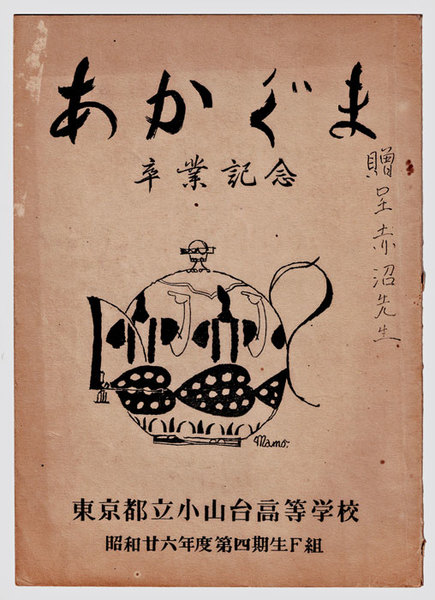 あかぐま
卒業記念
贈呈赤沼先生
Mamo.
東京都立小山台高等学校
昭和廿六年度第四期生F組